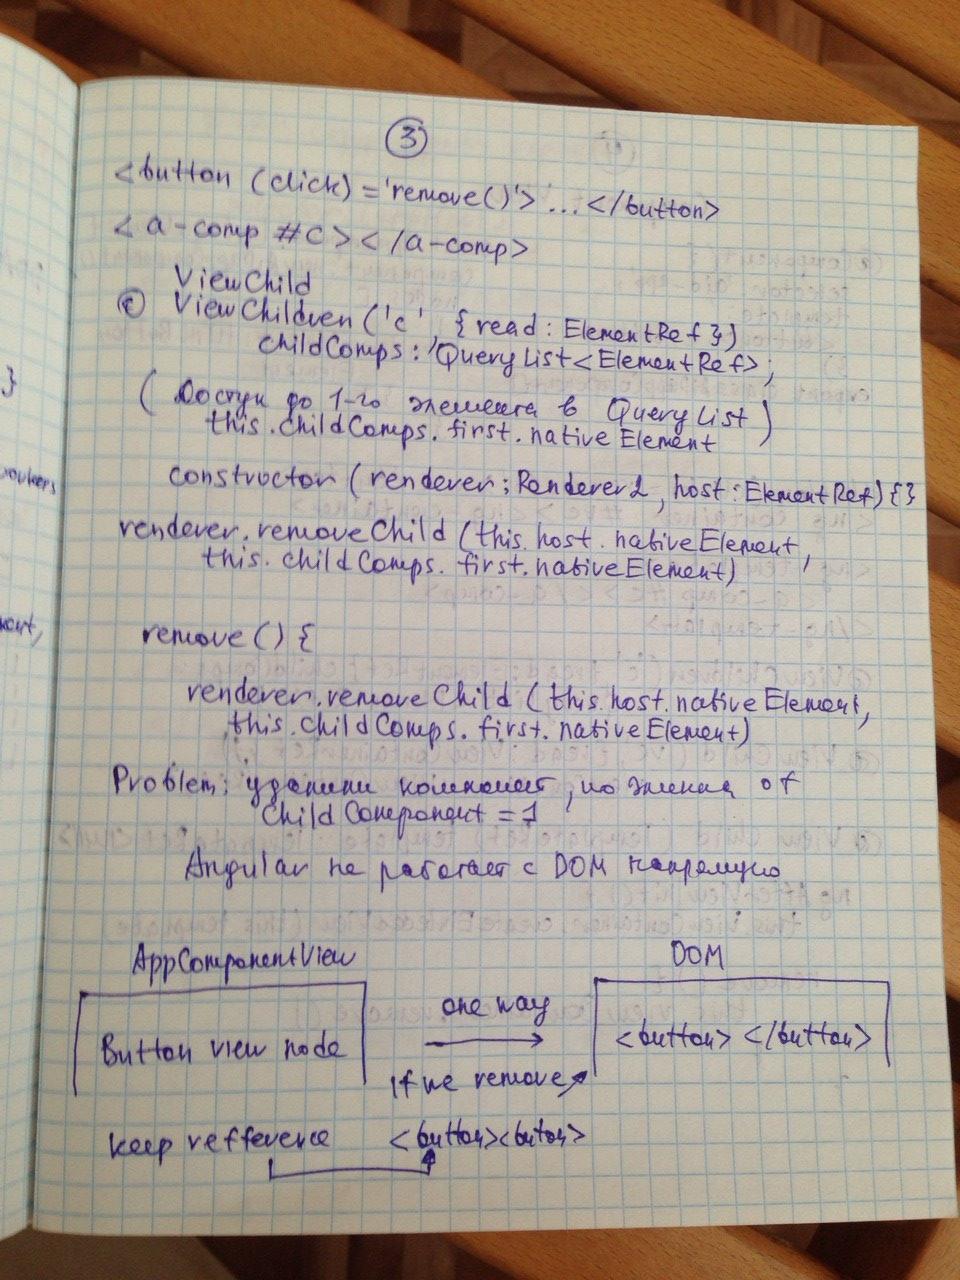 3
<button (click) = 'remove()'> ... </button>
<a-comp #c></a-comp>
ViewChild
© ViewChildren ('c', {read: ElementRef})
childComps: QueryList<ElementRef>;
( Доступ до 1-го элемента в QueryList )
this.childComps.first.nativeElement
constructor (renderer: Renderer2, host: ElementRef) {}
renderer.removeChild (this.host.nativeElement,
this.childComps.first.nativeElement)
remove () {
renderer.removeChild (this.host.nativeElement,
this.childComps.first.nativeElement)
Problem: удалили компонент, но of
Child Component = 1
Angular не работает с DOM напрямую
AppComponentView
DOM
Button view node
one way
<button> </button>
If we remove
keep refference <button><buton>